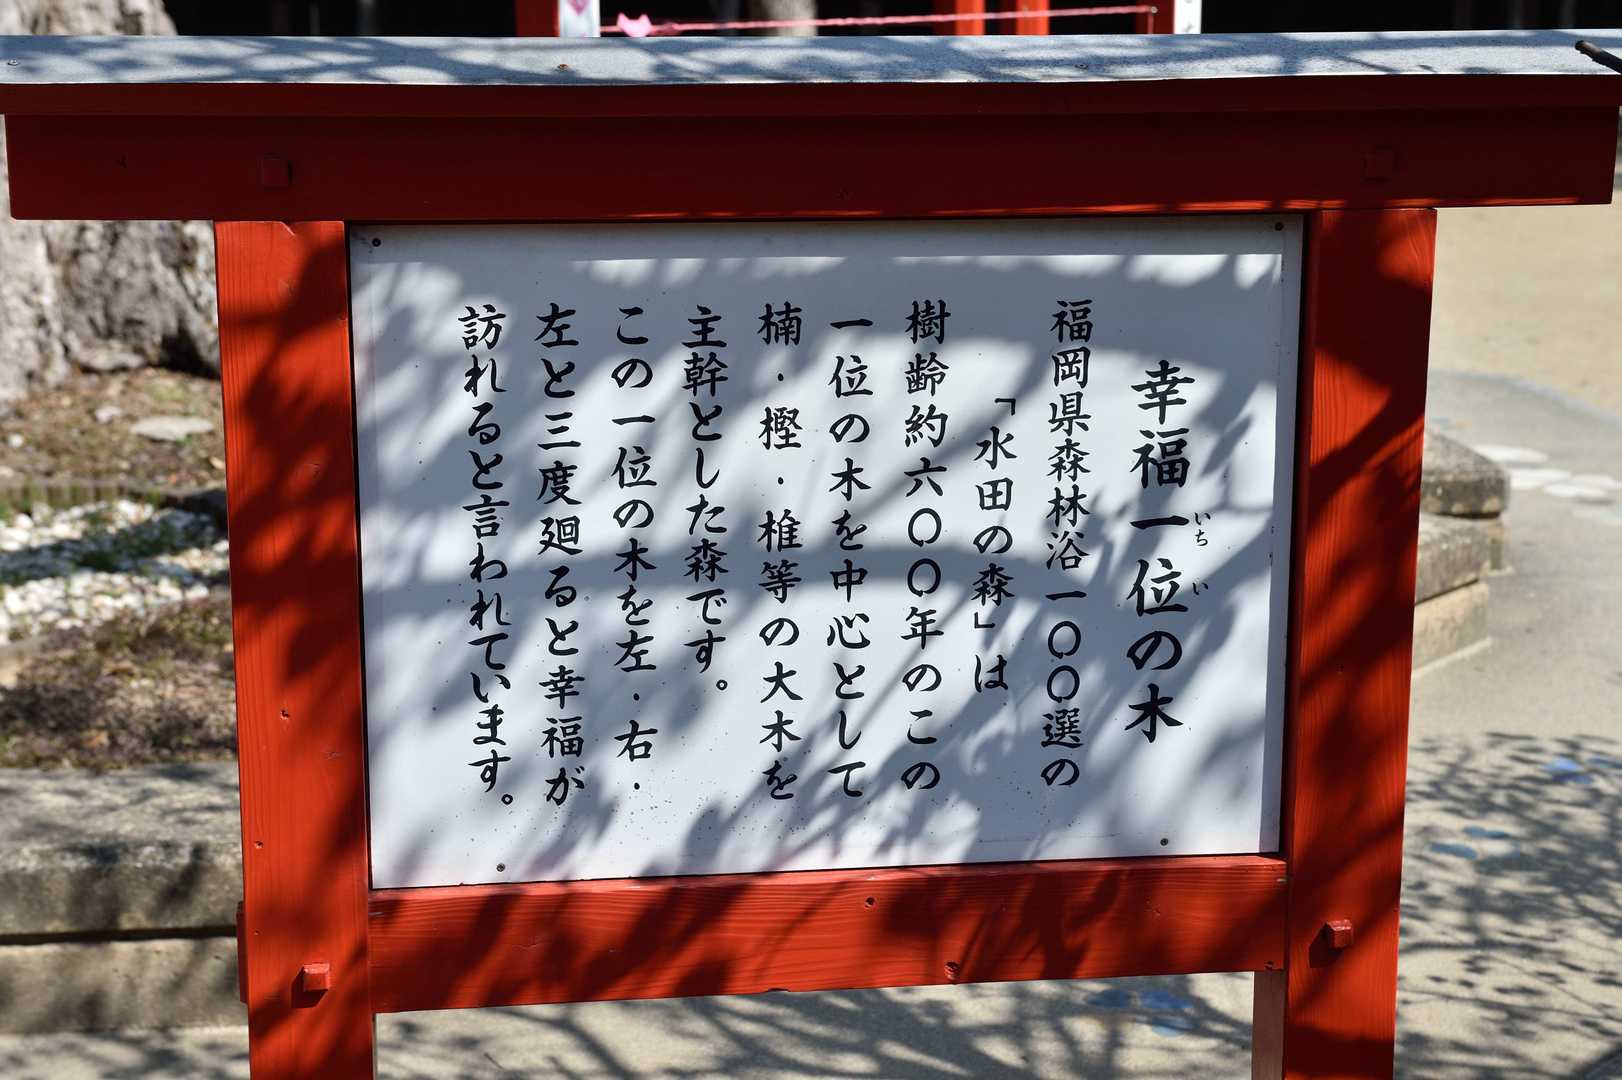 幸福一位の木
いち
い
福岡県森林浴一〇〇選の
「水田の森」は
樹齢約六〇〇年のこの
一位の木を中心として
楠・樫・椎等の大木を
主幹とした森です。
この一位の木を左・右・
左と三度廻ると幸福が
訪れると言われています。